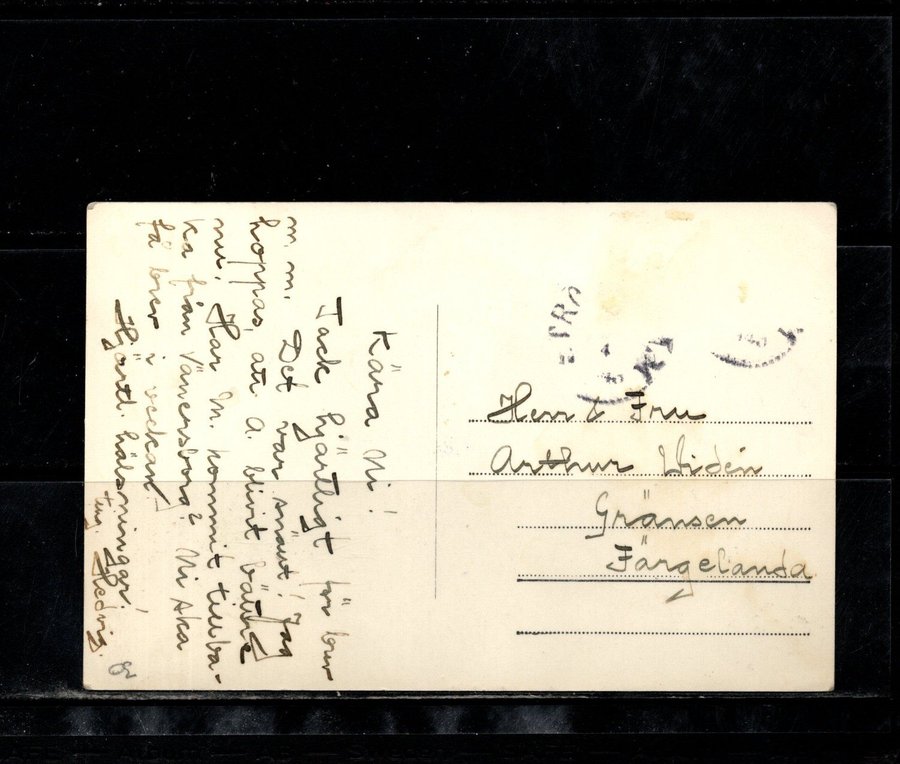 Kära Ni!
Tack hjärtligt för brev
m. m. Det var snäut! Jag
hoppas, att A. blivit bättre
nu. Har M. kommit tillba-
ka från Vänersborg? Ni ska
få brev i veckan.
Hjärtl. hälsningar!
Hedvig.
Herr & Fru
Arthur Widén
Gränsen
Färgelanda